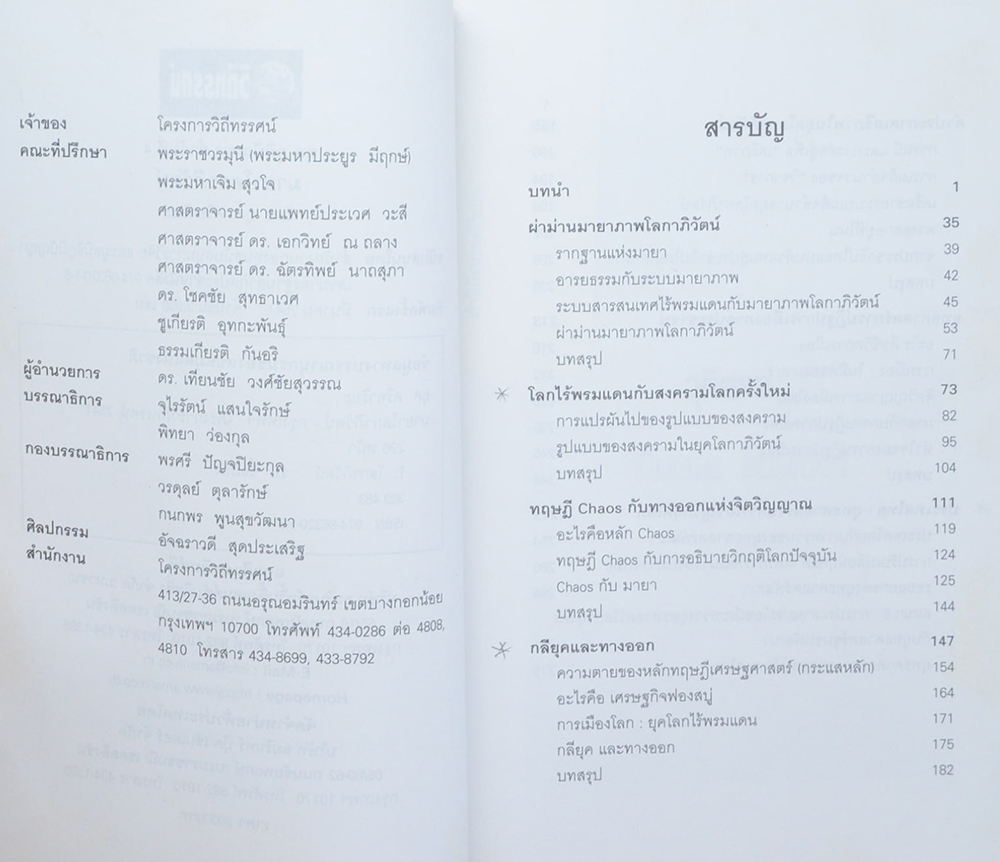 เจ้าของ โครงการวิถีทรรศน์
คณะที่ปรึกษา พระราชวรมุนี (พระมหาประยูร มีฤกษ์)
พระมหาเจิม สุวโจ
ศาสตราจารย์ นายแพทย์ประเวศ วะสี
ศาสตราจารย์ ดร. เอกวิทย์ ณ ถลาง
ศาสตราจารย์ ดร. ฉัตรทิพย์ นาถสุภา
ดร. โชคชัย สุทธาเวศ
ชูเกียรติ อุทกะพันธุ์
ธรรมเกียรติ กันอริ
ผู้อำนวยการ ดร. เทียนชัย วงศ์ชัยสุวรรณ
บรรณาธิการ จุไรรัตน์ แสนใจรักษ์
พิทยา ว่องกุล
กองบรรณาธิการ พรศรี ปัญจปิยะกุล
วรดุลย์ ตุลารักษ์
กนกพร พูนสุขวัฒนา
ศิลปกรรม อัจฉราวดี สุดประเสริฐ
สำนักงาน โครงการวิถีทรรศน์
413/27-36 ถนนอรุณอมรินทร์ เขตบางกอกน้อย
กรุงเทพฯ 10700 โทรศัพท์ 434-0286 ต่อ 4808,
4810 โทรสาร 434-8699, 433-8792
สารบัญ
บทนำ 1
ผ่าม่านมายาภาพโลกาภิวัตน์ 35
รากฐานแห่งมายา 39
อารยธรรมกับระบบมายาภาพ 42
ระบบสารสนเทศไร้พรมแดนกับมายาภาพโลกาภิวัตน์ 45
ผ่าม่านมายาภาพโลกาภิวัตน์ 53
บทสรุป 71
โลกไร้พรมแดนกับสงครามโลกครั้งใหม่ 73
การแปรผันไปของรูปแบบของสงคราม 82
รูปแบบของสงครามในยุคโลกาภิวัตน์ 95
บทสรุป 104
ทฤษฎี Chaos กับทางออกแห่งจิตวิญญาณ 111
อะไรคือหลัก Chaos 119
ทฤษฎี Chaos กับการอธิบายวิกฤติโลกปัจจุบัน 124
Chaos กับ มายา 125
บทสรุป 144
กลียุคและทางออก 147
ความตายของหลักทฤษฎีเศรษฐศาสตร์ (กระแสหลัก) 154
อะไรคือ เศรษฐกิจฟองสบู่ 164
การเมืองโลก : ยุคโลกไร้พรมแดน 171
กลียุค และทางออก 175
บทสรุป 182